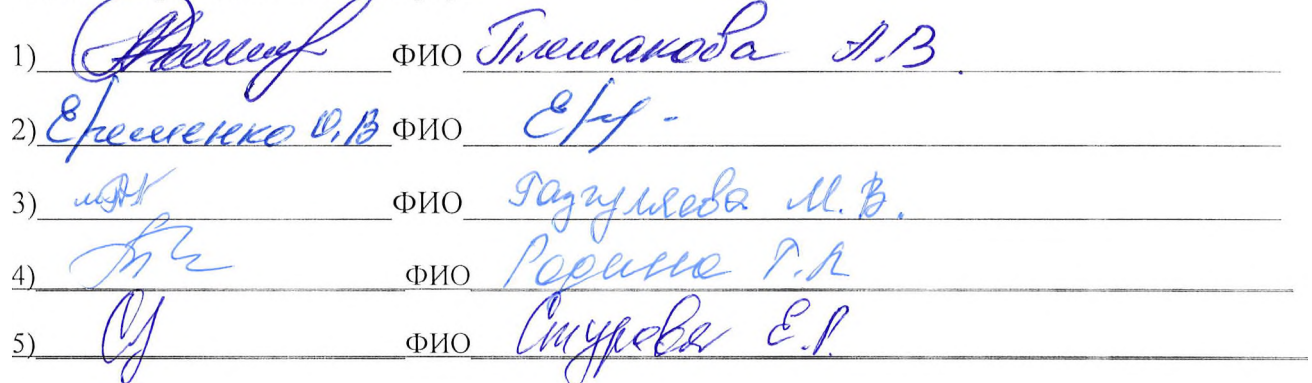 1) ФИО Плешакова А.В.
2) Еременко О,В ФИО
3) ФИО М. В.
4) ФИО Родина Г.А
5) ФИО Стурова Е.